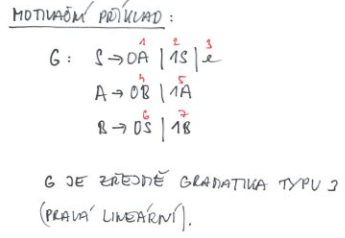 MOTIVAČNÍ PŘÍKLAD:
1 2 3
G: S → 0A | 1S | e
4 5
A → 0B | 1A
6 7
B → 0S | 1B
G JE ZŘEJMĚ GRAMATIKA TYPU 3
(PRAVÁ LINEÁRNÍ).